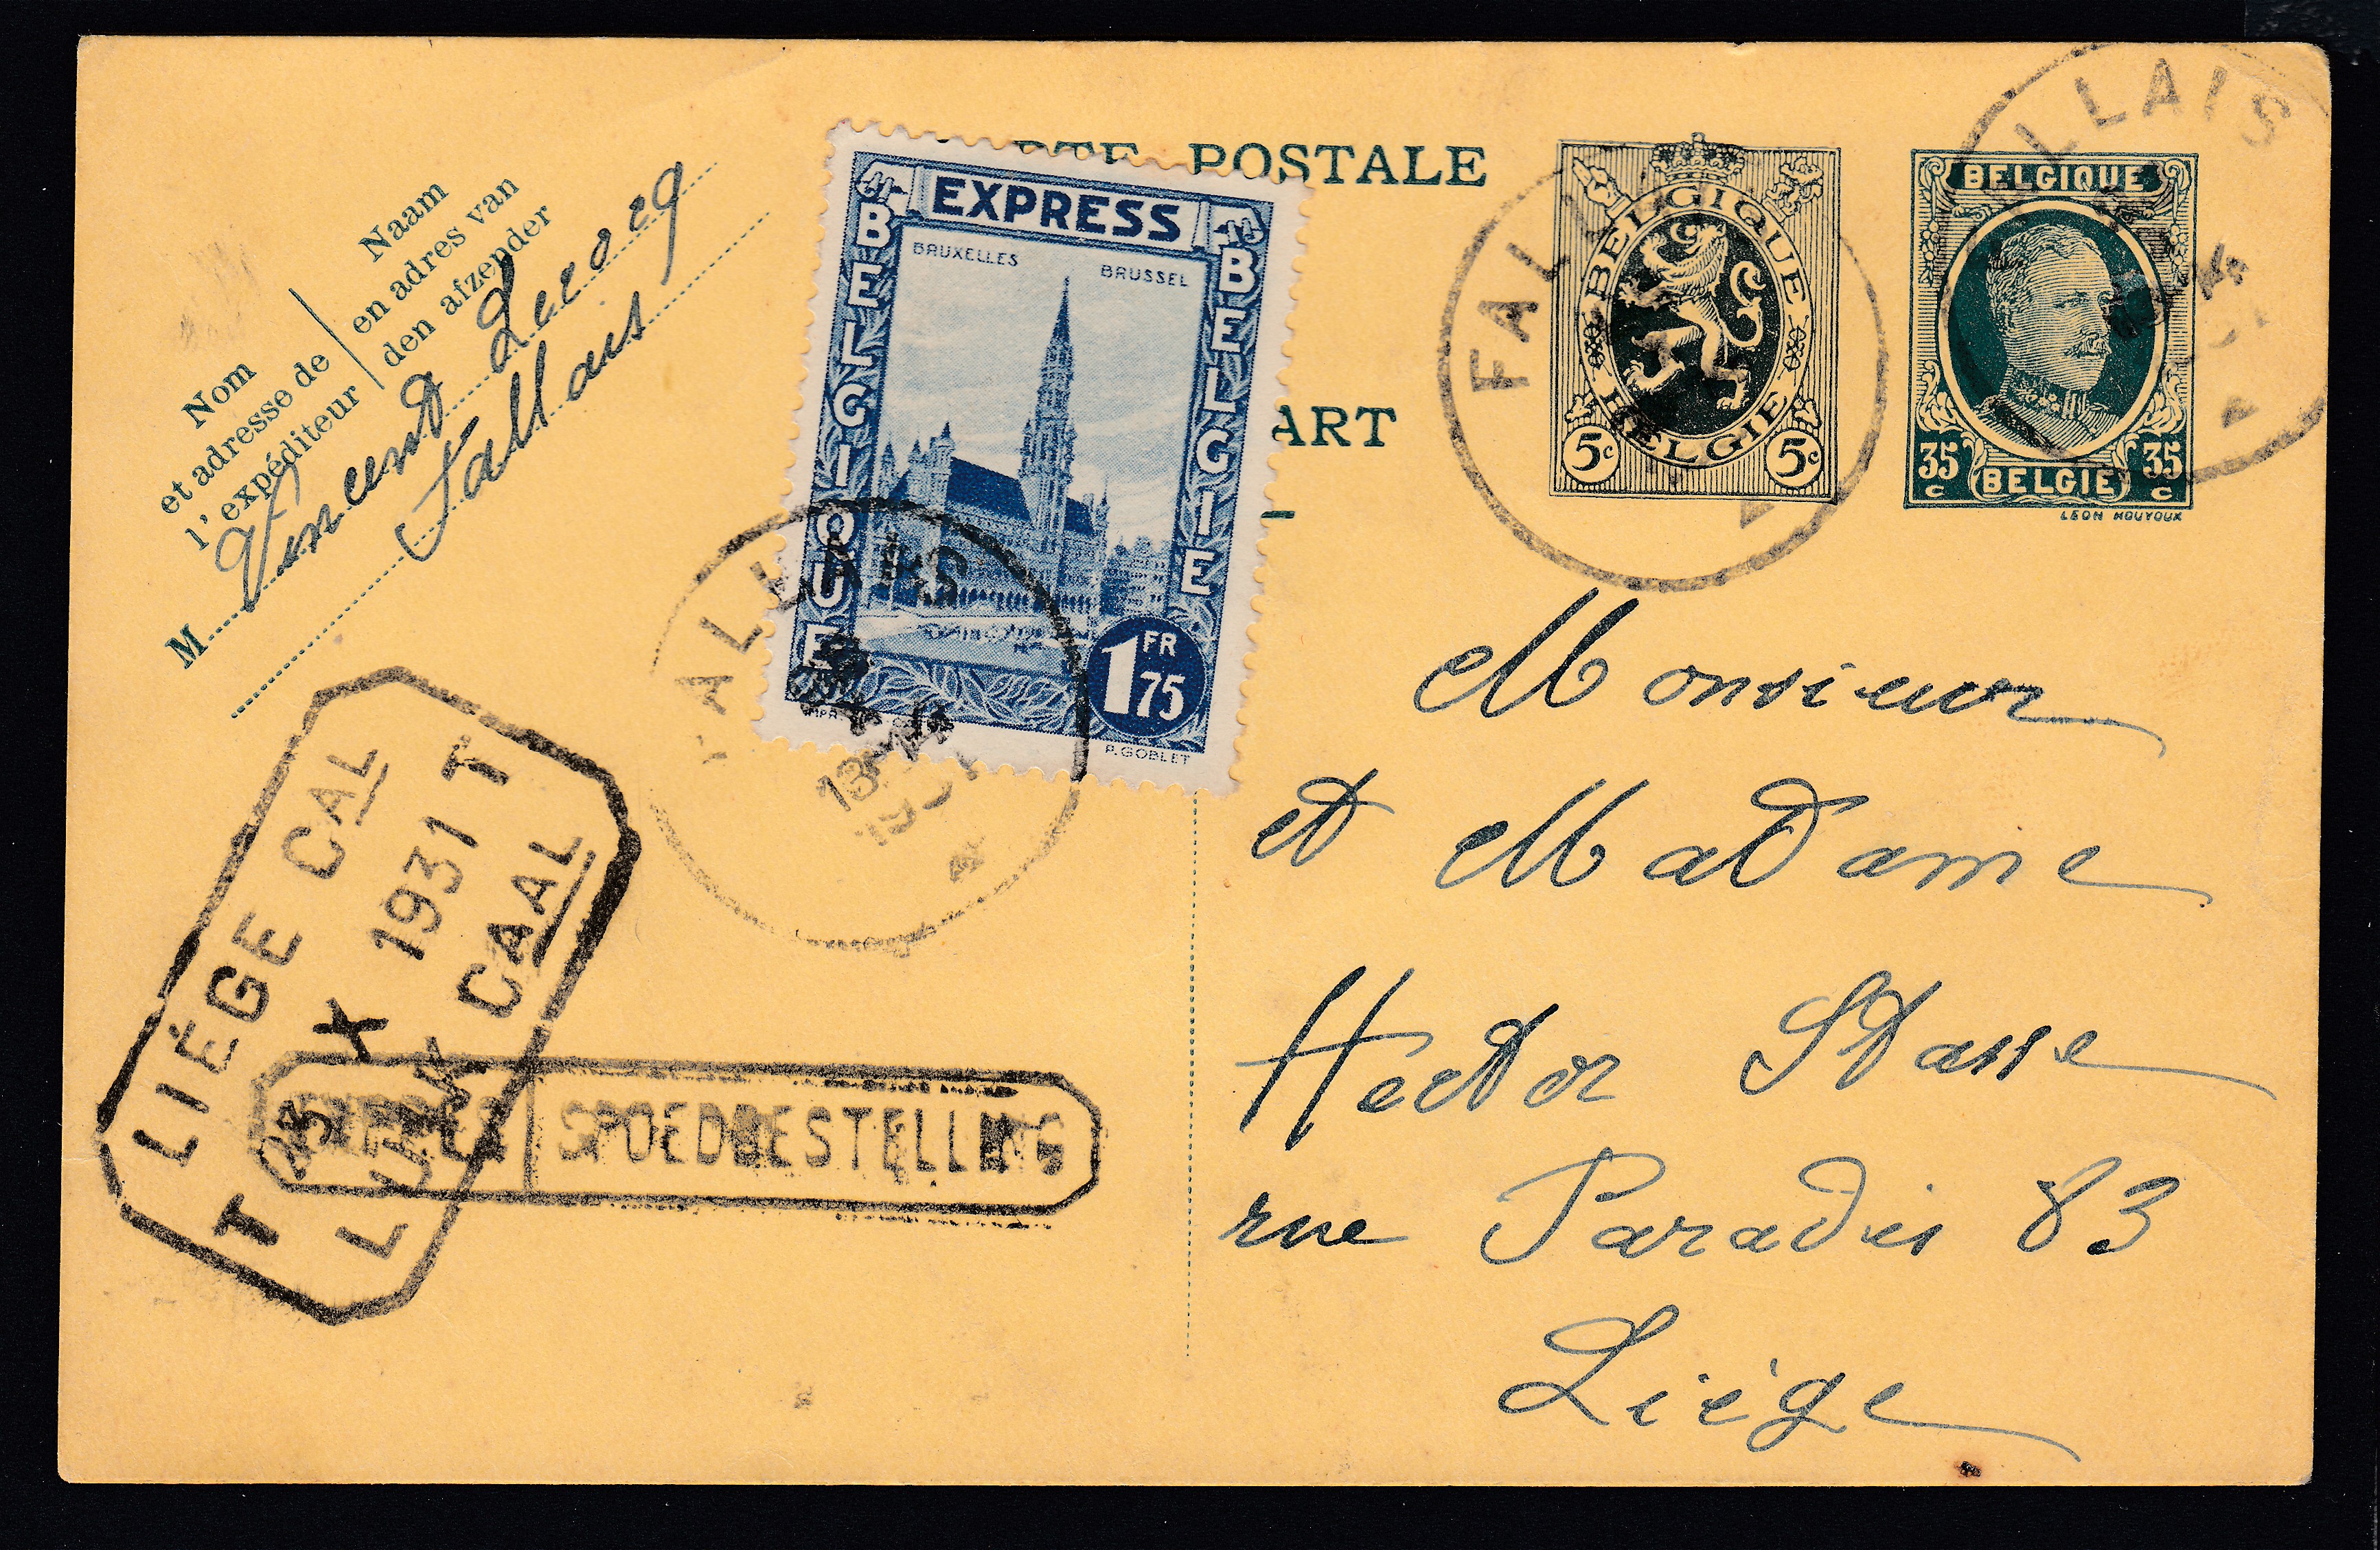 POSTALE
ART
Naam
en adres van
den afzender
Nom
et adresse de
l'expéditeur
M Vincent Leroy
Fallais
EXPRESS
BRUXELLES BRUSSEL
BELGIQUE
BELGIE
1 FR 75
P. GOBLET
BELGIQUE
BELGIE
5c 5c
BELGIQUE
35 c BELGIE 35 c
LEON HOUYOUX
FAL
LLAIS
ALLAIS
13
1931
LIÈGE CAL
X 1931 T
T
LUIK CAAL
SPOEDBESTELLING
Monsieur
et Madame
Hector Stasse
rue Paradis 83
Liége